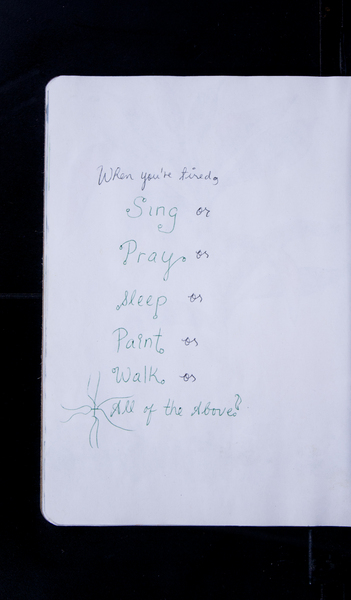 When you're tired,
Sing or
Pray or
Sleep or
Paint or
Walk or
All of the Above?